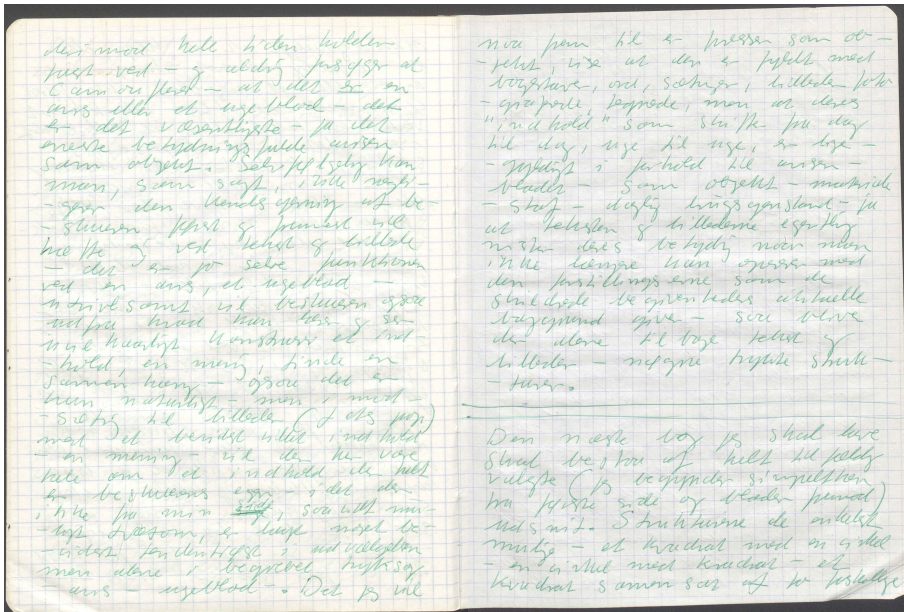 derimod hele tiden holder
fast ved – og aldrig forsøger at
camouflere – at det er en
avis eller et ugeblad – det
er det væsentligste – ja det
eneste betydningsfulde avisen
som objekt. Selvfølgelig kan
man, som sagt, ikke neger-
-gerer den kendsgerning at be-
-skueren først og fremmest vil
hæfte sig ved tekst og billede
– det er jo selve funktionen
ved en avis, et ugeblad –
utvivlsomt vil beskueren også
ud fra hvad han læser og ser
uvilkaarligt konstruere et ind-
-hold, en mening, finde en
sammenhæng – også det er
kun naturligt – men i mod-
-sætnig til billeder (f.eks. pop)
med et bevidst tillet indhold
– en mening – vil der her være
tale om et indhold der helt
er beskuerens eget – idet der
ikke fra min side, saavidt mu-
-ligt, er lagt noget be-
-vidst tendentiøst i udvælgelsen
men alene i begrebet tryksag
– avis – ugeblad. Det jeg vil
naa frem til er pressen som ob-
-jekt, vise at den er fyldt med
bogstaver, ord, sætninger, billeder foto-
-graferede, tegnede, men at deres
"indhold" som skifter fra dag
til dag, uge til uge, er lige-
-gyldigt i forhold til avisen –
bladet – som objekt – materiale
– stof – daglig brugsgenstand – ja
at teksten og billederne egentlig
mister deres betydning naar man
ikke længere kan operere med
den forestillingsevne som de
skildrede begivenheders aktuelle
baggrund giver – saa bliver
der alene tilbage tekst og
billeder – nøgne trykte struk-
-turer.
Den næste bog jeg skal lave
skal bestaa af helt tilfældig
valgte (jeg begynder simpelthen
fra første side og blader fremad)
udsnit. Strukturerne de enklest
mulige – et kvadrat med en cirkel
– en cirkel med kvadrat – et
kvadrat sammensat af to forskellige